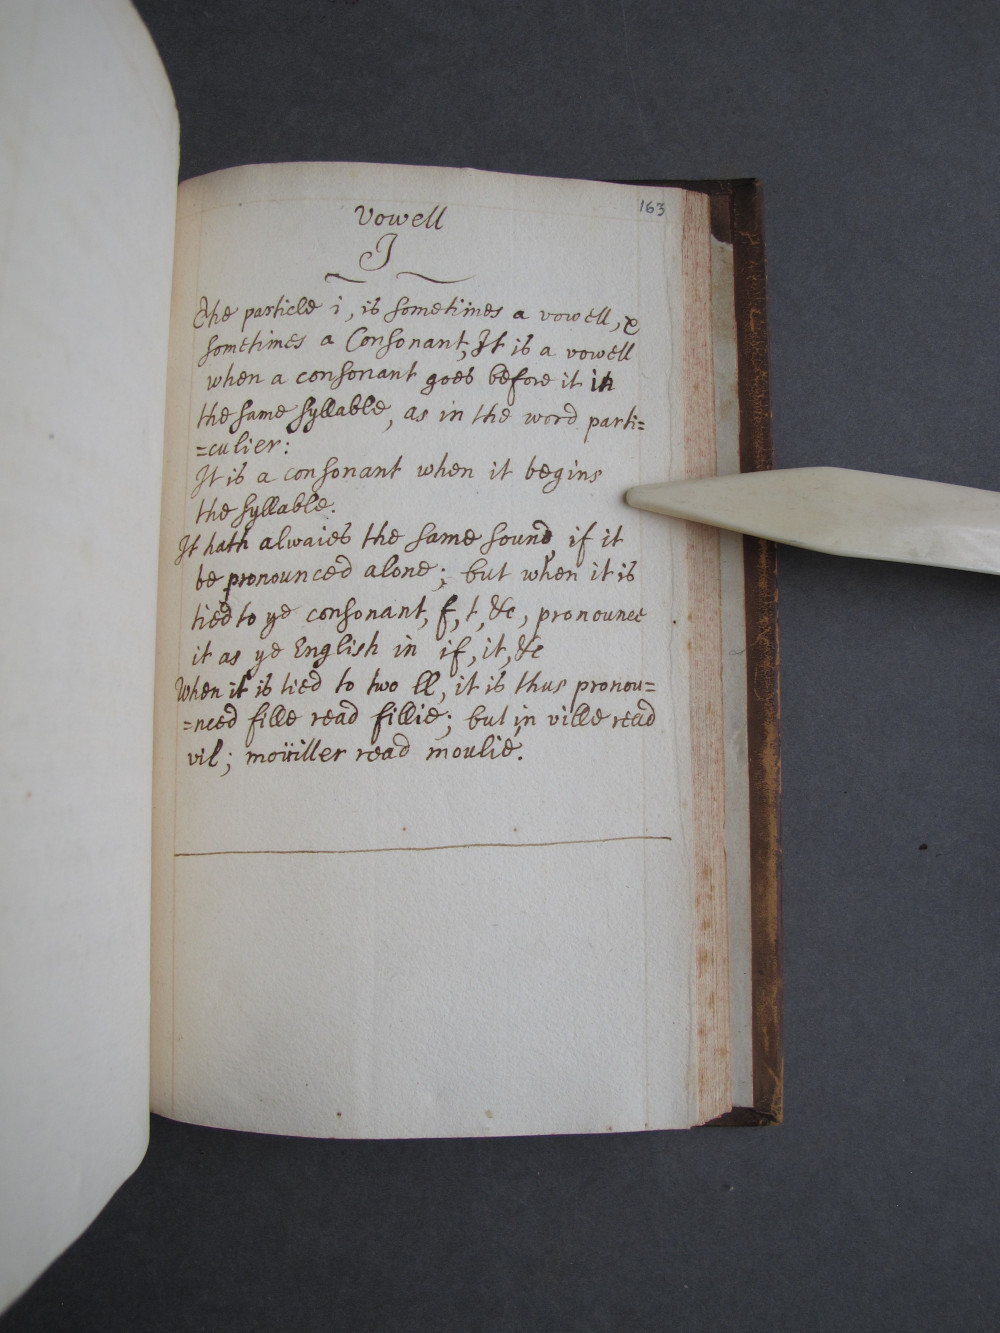 163
Vowell
I
The particle i, is sometimes a vowell, &
sometimes a Consonant, It is a vowell
when a consonant goes before it in
the same syllable, as in the word parti=
=culier:
It is a consonant when it begins
the syllable.
It hath alwaies the same sound, if it
be pronounced alone; but when it is
tied to ye consonant, f, t, &c, pronounce
it as ye English in if, it, &c
When it is tied to two ll, it is thus pronou=
=nced fille read fillie; but in ville read
vil; moüiller read moulie.